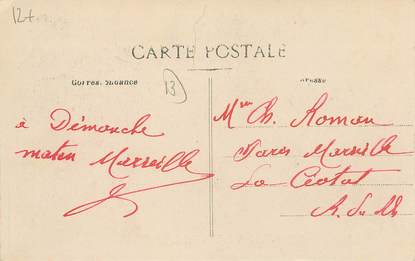 12+
CARTE POSTALE
Correspondance
13
Adresse
à Démanche
maten Marseille
Mr Ch. Roman
Marseille
La Ciotat